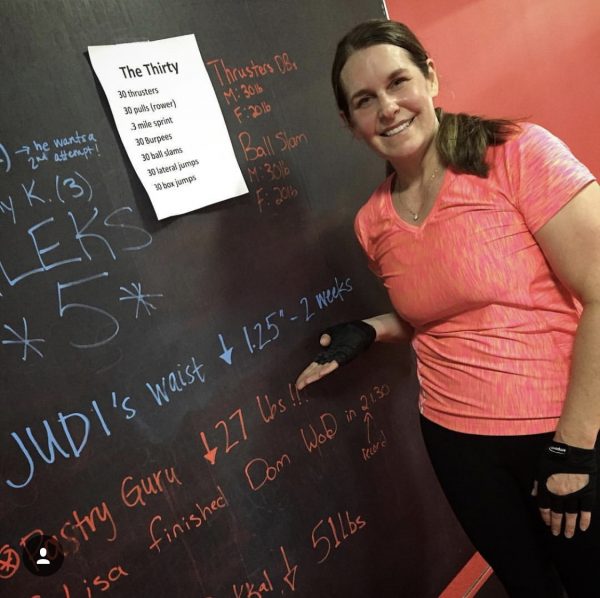 The Thirty
30 thrusters
30 pulls (rower)
.3 mile sprint
30 Burpees
30 ball slams
30 lateral jumps
30 box jumps
Thrusters DBs
M: 30lb
F: 20lb
Ball Slam
M: 30lb
F: 20lb
→ he wants a
2nd attempt!
K. (3)
LEKS
* 5 *
JUDI's waist ↓ 1.25" - 2 weeks
* Pastry Guru ↓ 27 lbs!!
Lisa finished Dom WoD in 2:30
↑
record
↓ 51lbs